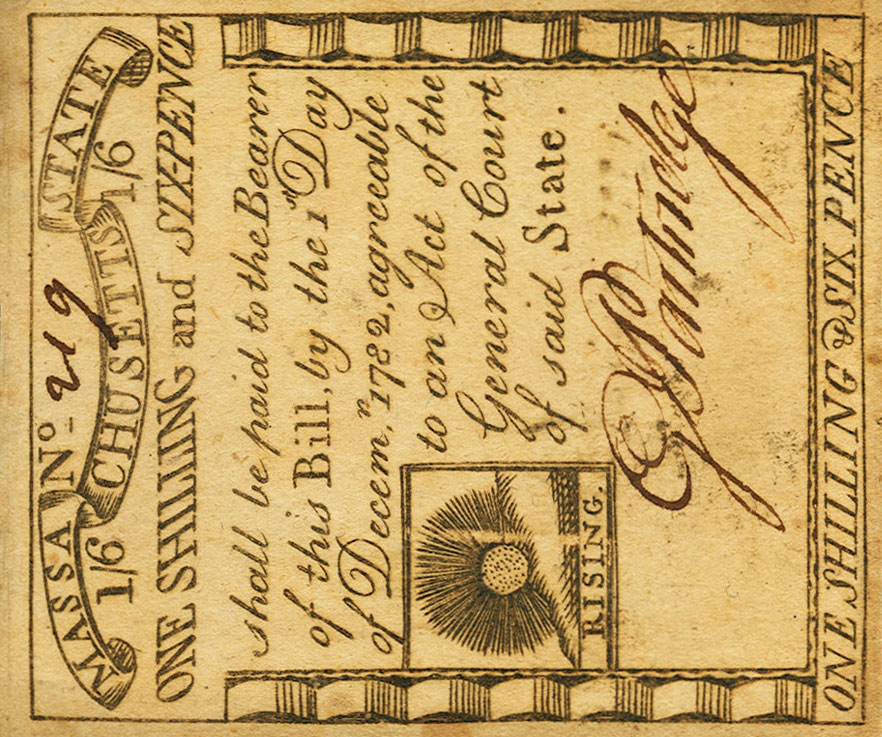 MASSA CHUSETTS STATE
Nº 219
1/6 1/6
ONE SHILLING and SIX-PENCE
shall be paid to the Bearer
of this Bill, by the 1st Day
of Decem.r 1782, agreeable
to an Act of the
General Court
of said State.
RISING.
G Partridge
ONE SHILLING & SIX PENCE